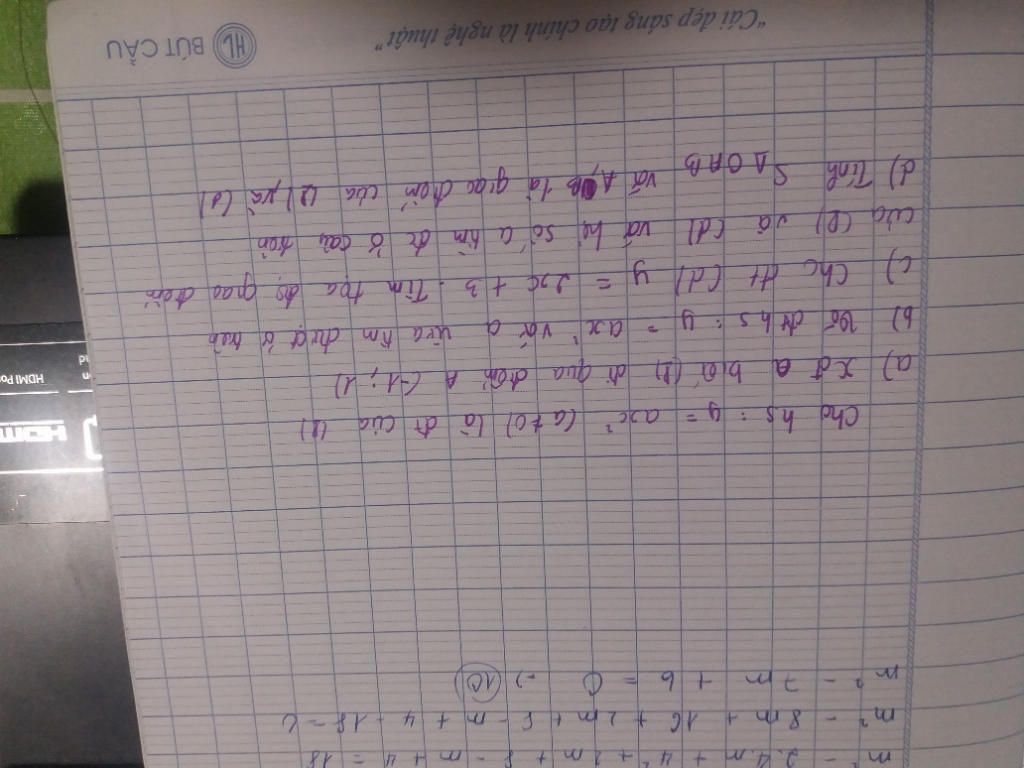 "Cái đẹp sáng tạo chính là nghệ thuật"
HL BÚT CẦU
m² - 2.4.m + 4² + 2m + 8 - m + 4 = 18
m² - 8m + 16 + 2m + 8 - m + 4 - 18 = 0
m² - 7m + 6 = 0 →) 10
Cho hs: y = ax² (a≠0) là đt của (P)
a) xđ a biết (P) đi qua điểm A (-1; 1)
b) Vẽ đths: y = ax² với a vừa tìm được ở trên
c) Cho đt (d) y = 2x + 3. Tìm tọa độ giao điểm
của (P) và (d) với hệ số a tìm đc ở câu trên
d) Tính S △OAB với A, B là giao điểm của (P) và (d)
HDMI
HDMI Por